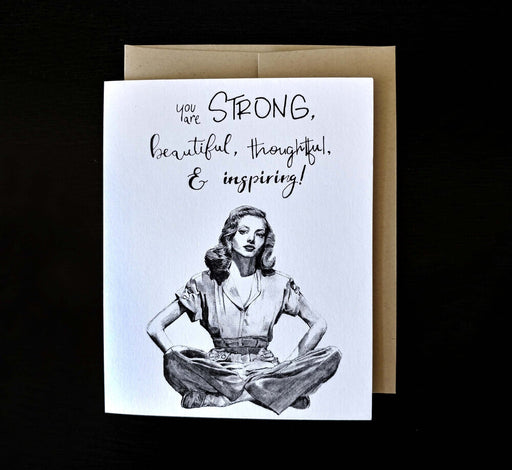 you are STRONG,
beautiful, thoughtful,
& inspiring!